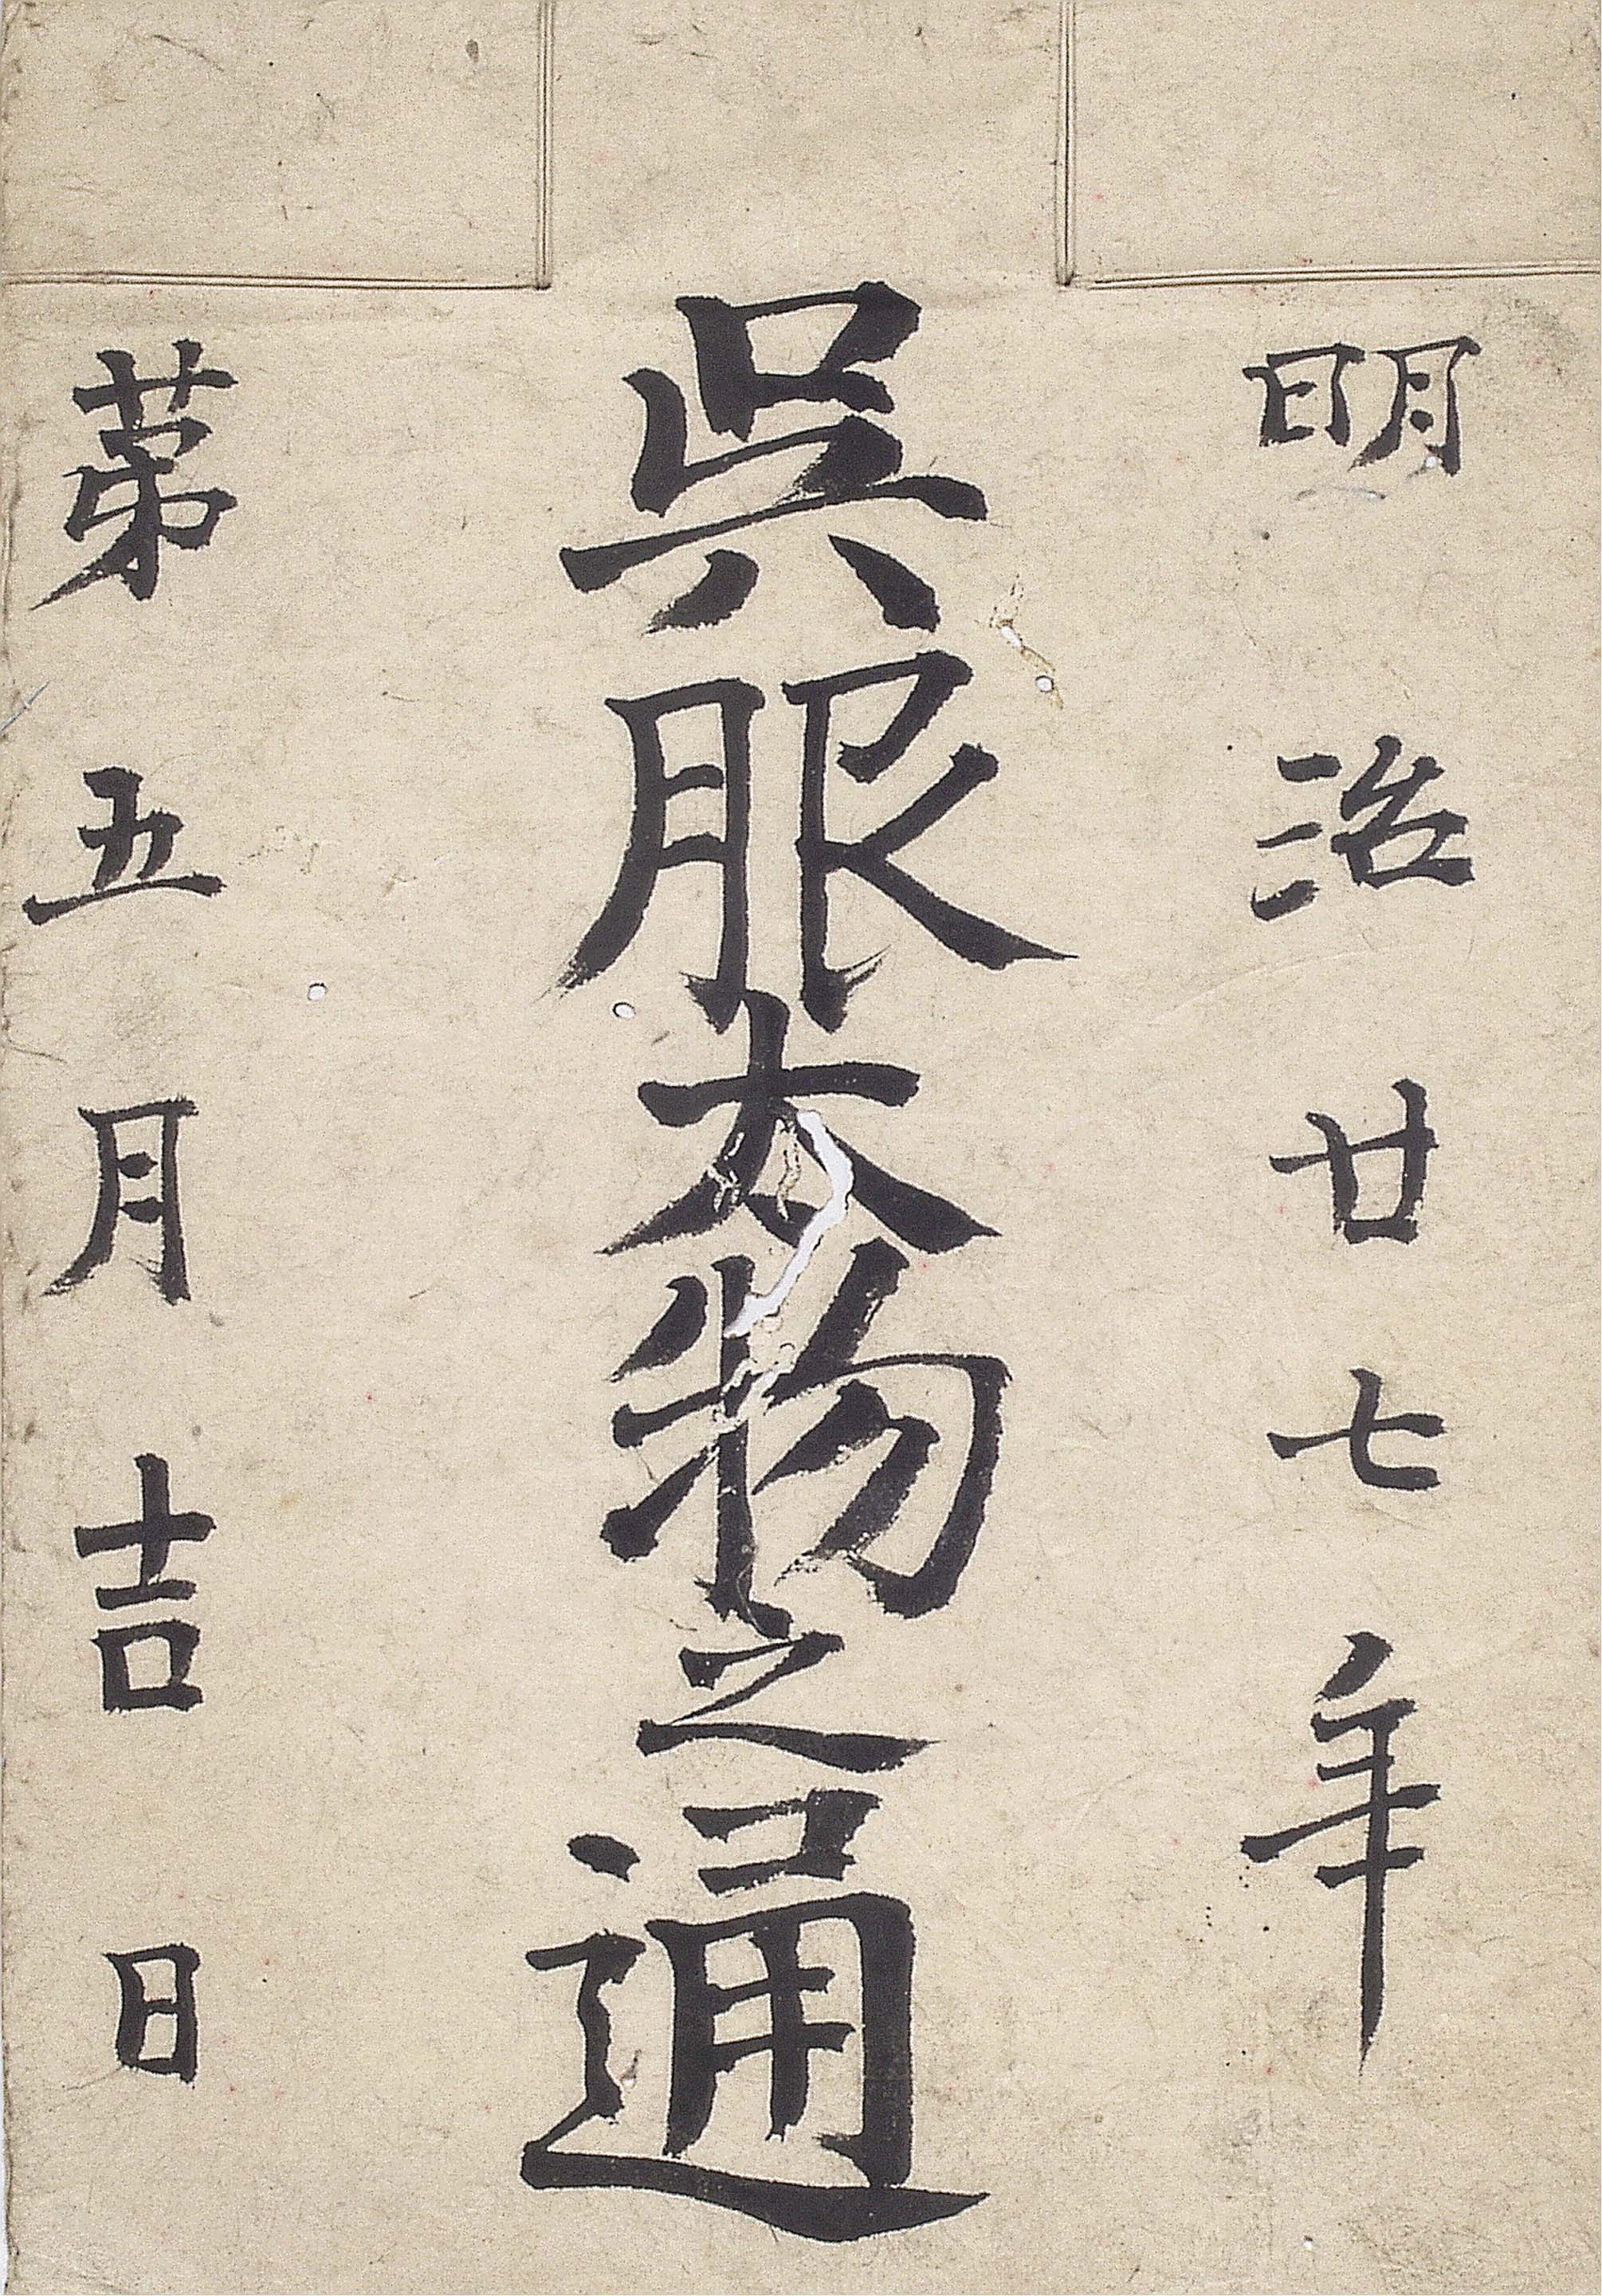 明治廿七年
呉服太物之通
第五月吉日